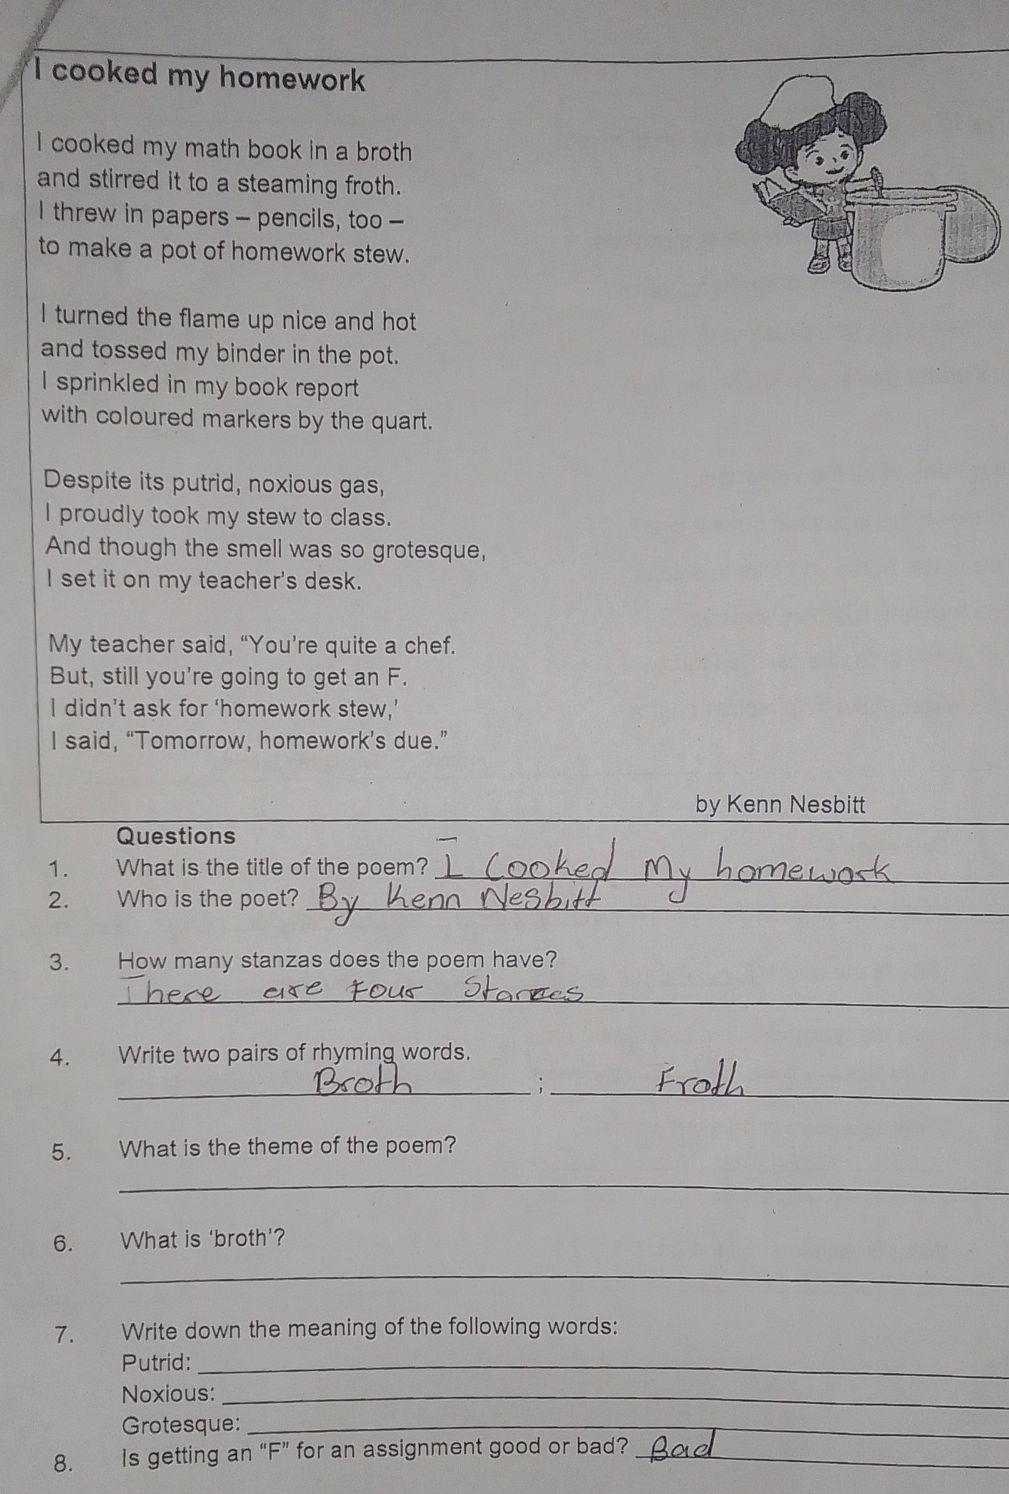 I cooked my homework
I cooked my math book in a broth
and stirred it to a steaming froth.
I threw in papers – pencils, too –
to make a pot of homework stew.
I turned the flame up nice and hot
and tossed my binder in the pot.
I sprinkled in my book report
with coloured markers by the quart.
Despite its putrid, noxious gas,
I proudly took my stew to class.
And though the smell was so grotesque,
I set it on my teacher's desk.
My teacher said, “You're quite a chef.
But, still you're going to get an F.
I didn't ask for ‘homework stew,’
I said, “Tomorrow, homework's due.”
by Kenn Nesbitt
Questions
1. What is the title of the poem? I Cooked My homework
2. Who is the poet? By Kenn Nesbitt
3. How many stanzas does the poem have?
There are Four Stanzas
4. Write two pairs of rhyming words.
Broth ; Froth
5. What is the theme of the poem?
6. What is ‘broth’?
7. Write down the meaning of the following words:
Putrid:
Noxious:
Grotesque:
8. Is getting an “F” for an assignment good or bad? Bad